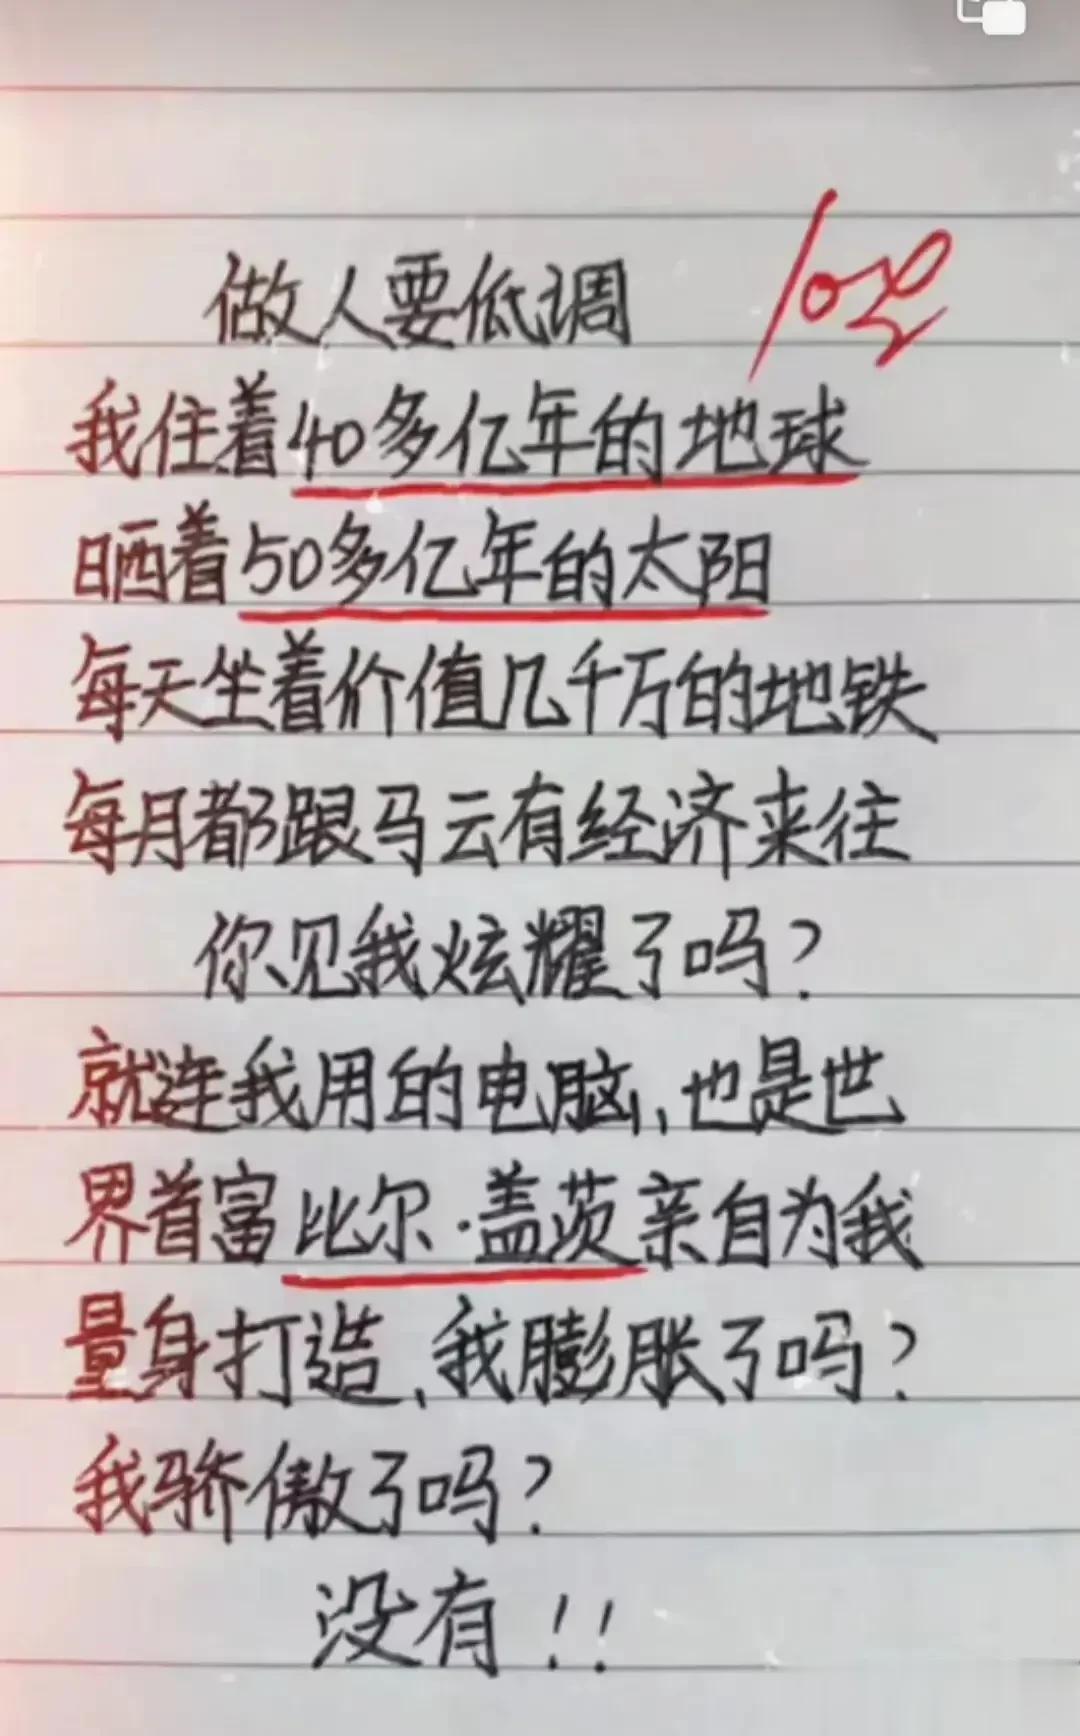 做人要低调
100分
我住着40多亿年的地球
晒着50多亿年的太阳
每天坐着价值几千万的地铁
每月都跟马云有经济来往
你见我炫耀了吗?
就连我用的电脑,也是世
界首富比尔·盖茨亲自为我
量身打造,我膨胀了吗?
我骄傲了吗?
没有!!